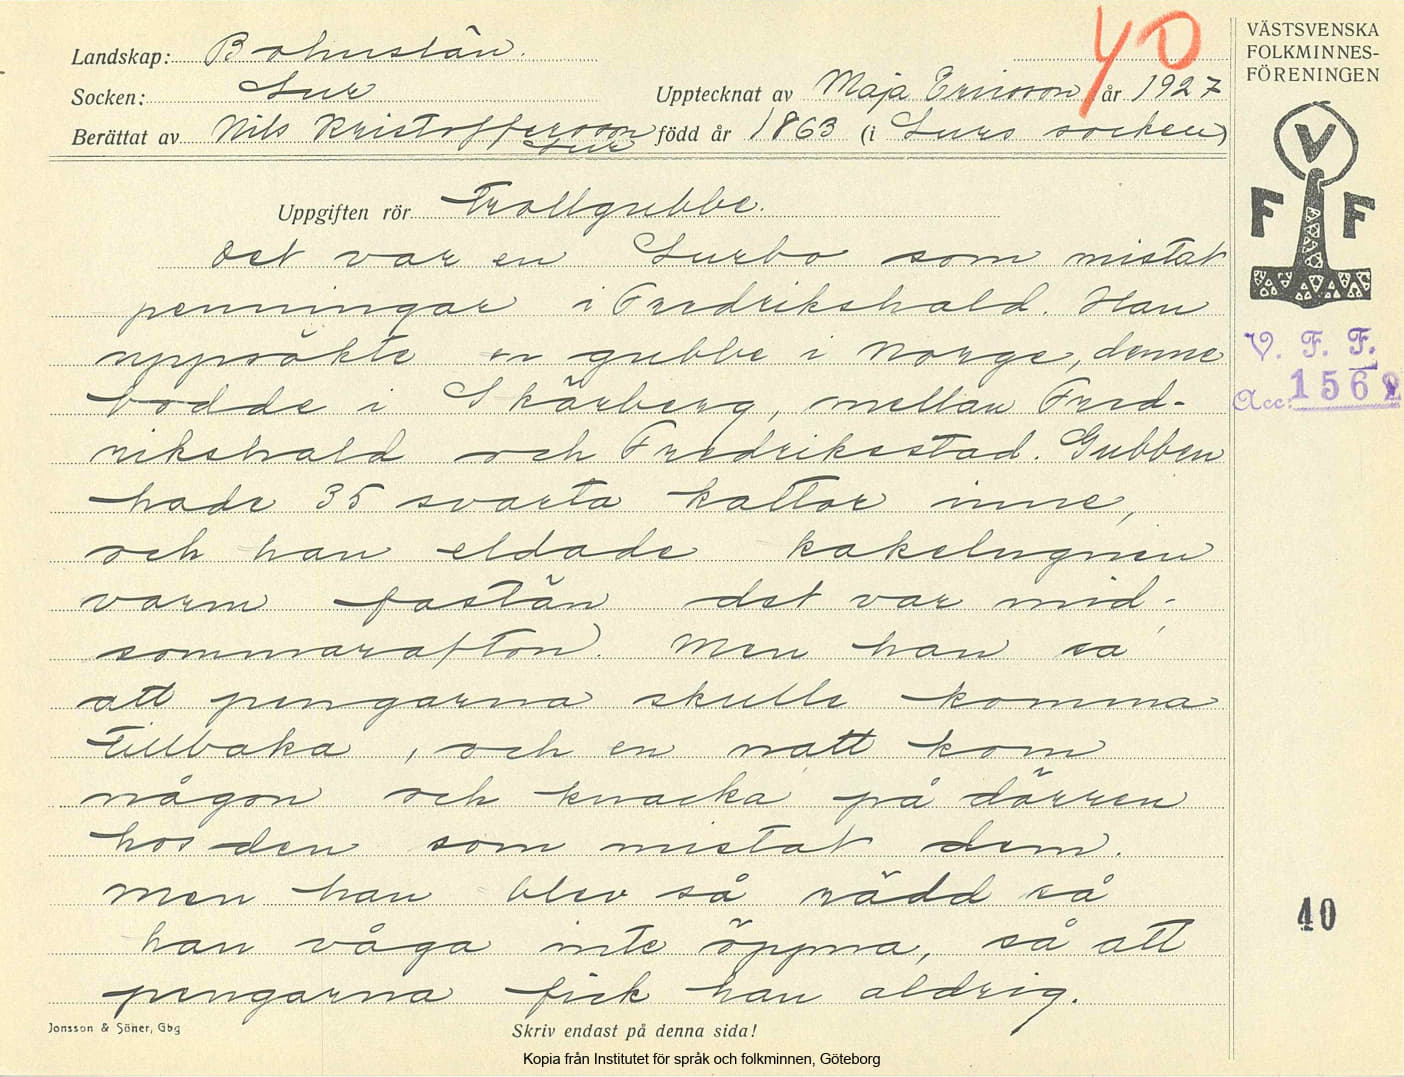 Landskap: Bohuslän.
Socken: Lur
Upptecknat av Maja Ericson år 1927
Berättat av Nils Kristoffersson
Lur
född år 1863 (i Lurs socken)
40
VÄSTSVENSKA
FOLKMINNES-
FÖRENINGEN
V
F F
V. F. F.
Acc: 1562
Uppgiften rör Trollgubbe.
Det var en Lurbo som mistat
penningar i Fredrikshald. Han
uppsökte en gubbe i Norge, denne
bodde i Skärberg, mellan Fred-
rikshald och Fredriksstad. Gubben
hade 35 svarta kattor inne,
och han eldade kakelugnen
varm fastän det var mid-
sommarafton. Men han sa
att pengarna skulle komma
tillbaka, och en natt kom
någon och knacka på dörren
hos den som mistat dem.
Men han blev så rädd så
han våga inte öppna, så att
pengarna fick han aldrig.
40
Jonsson & Söner, Gbg
Skriv endast på denna sida!
Kopia från Institutet för språk och folkminnen, Göteborg